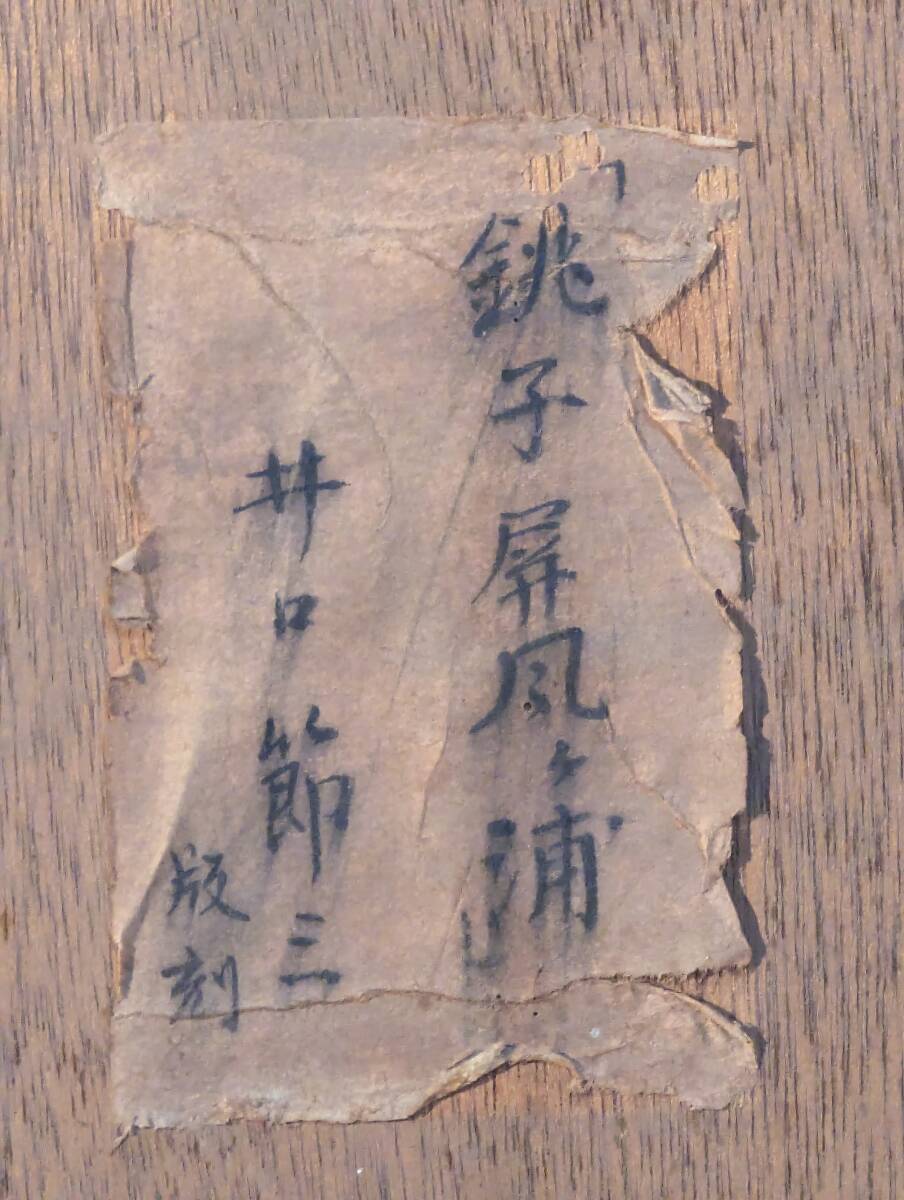 「銚子屏風ヶ浦」
井口節三
版刻